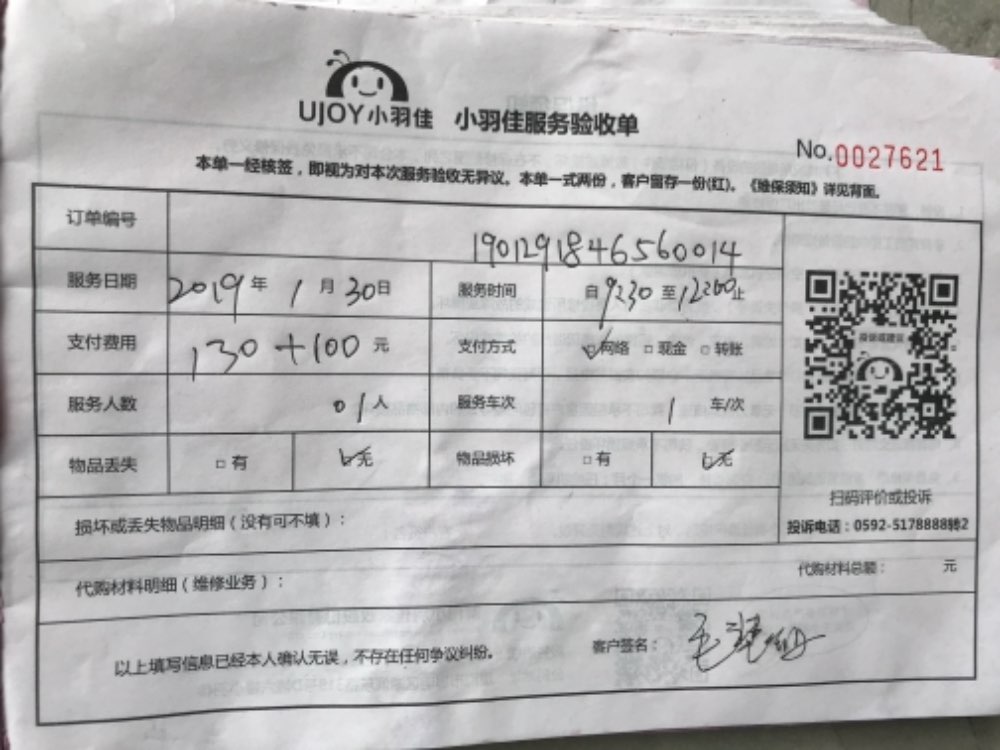 UJOY小羽佳 小羽佳服务验收单
No.0027621
本单一经核签，即视为对本次服务验收无异议。本单一式两份，客户留存一份(红)。《维保须知》详见背面。
订单编号 1901291846560014
服务日期 2019年1月30日 服务时间 自9230至12200止
支付费用 130+100元 支付方式 ☑网络 □现金 □转账
服务人数 01人 服务车次 1车/次
物品丢失 □有 ☑无 物品损坏 □有 ☑无
扫码评价或投诉
损坏或丢失物品明细（没有可不填）：
投诉电话：0592-5178888转2
代购材料明细（维修业务）：
代购材料总额： 元
以上填写信息已经本人确认无误，不存在任何争议纠纷。 客户签名：